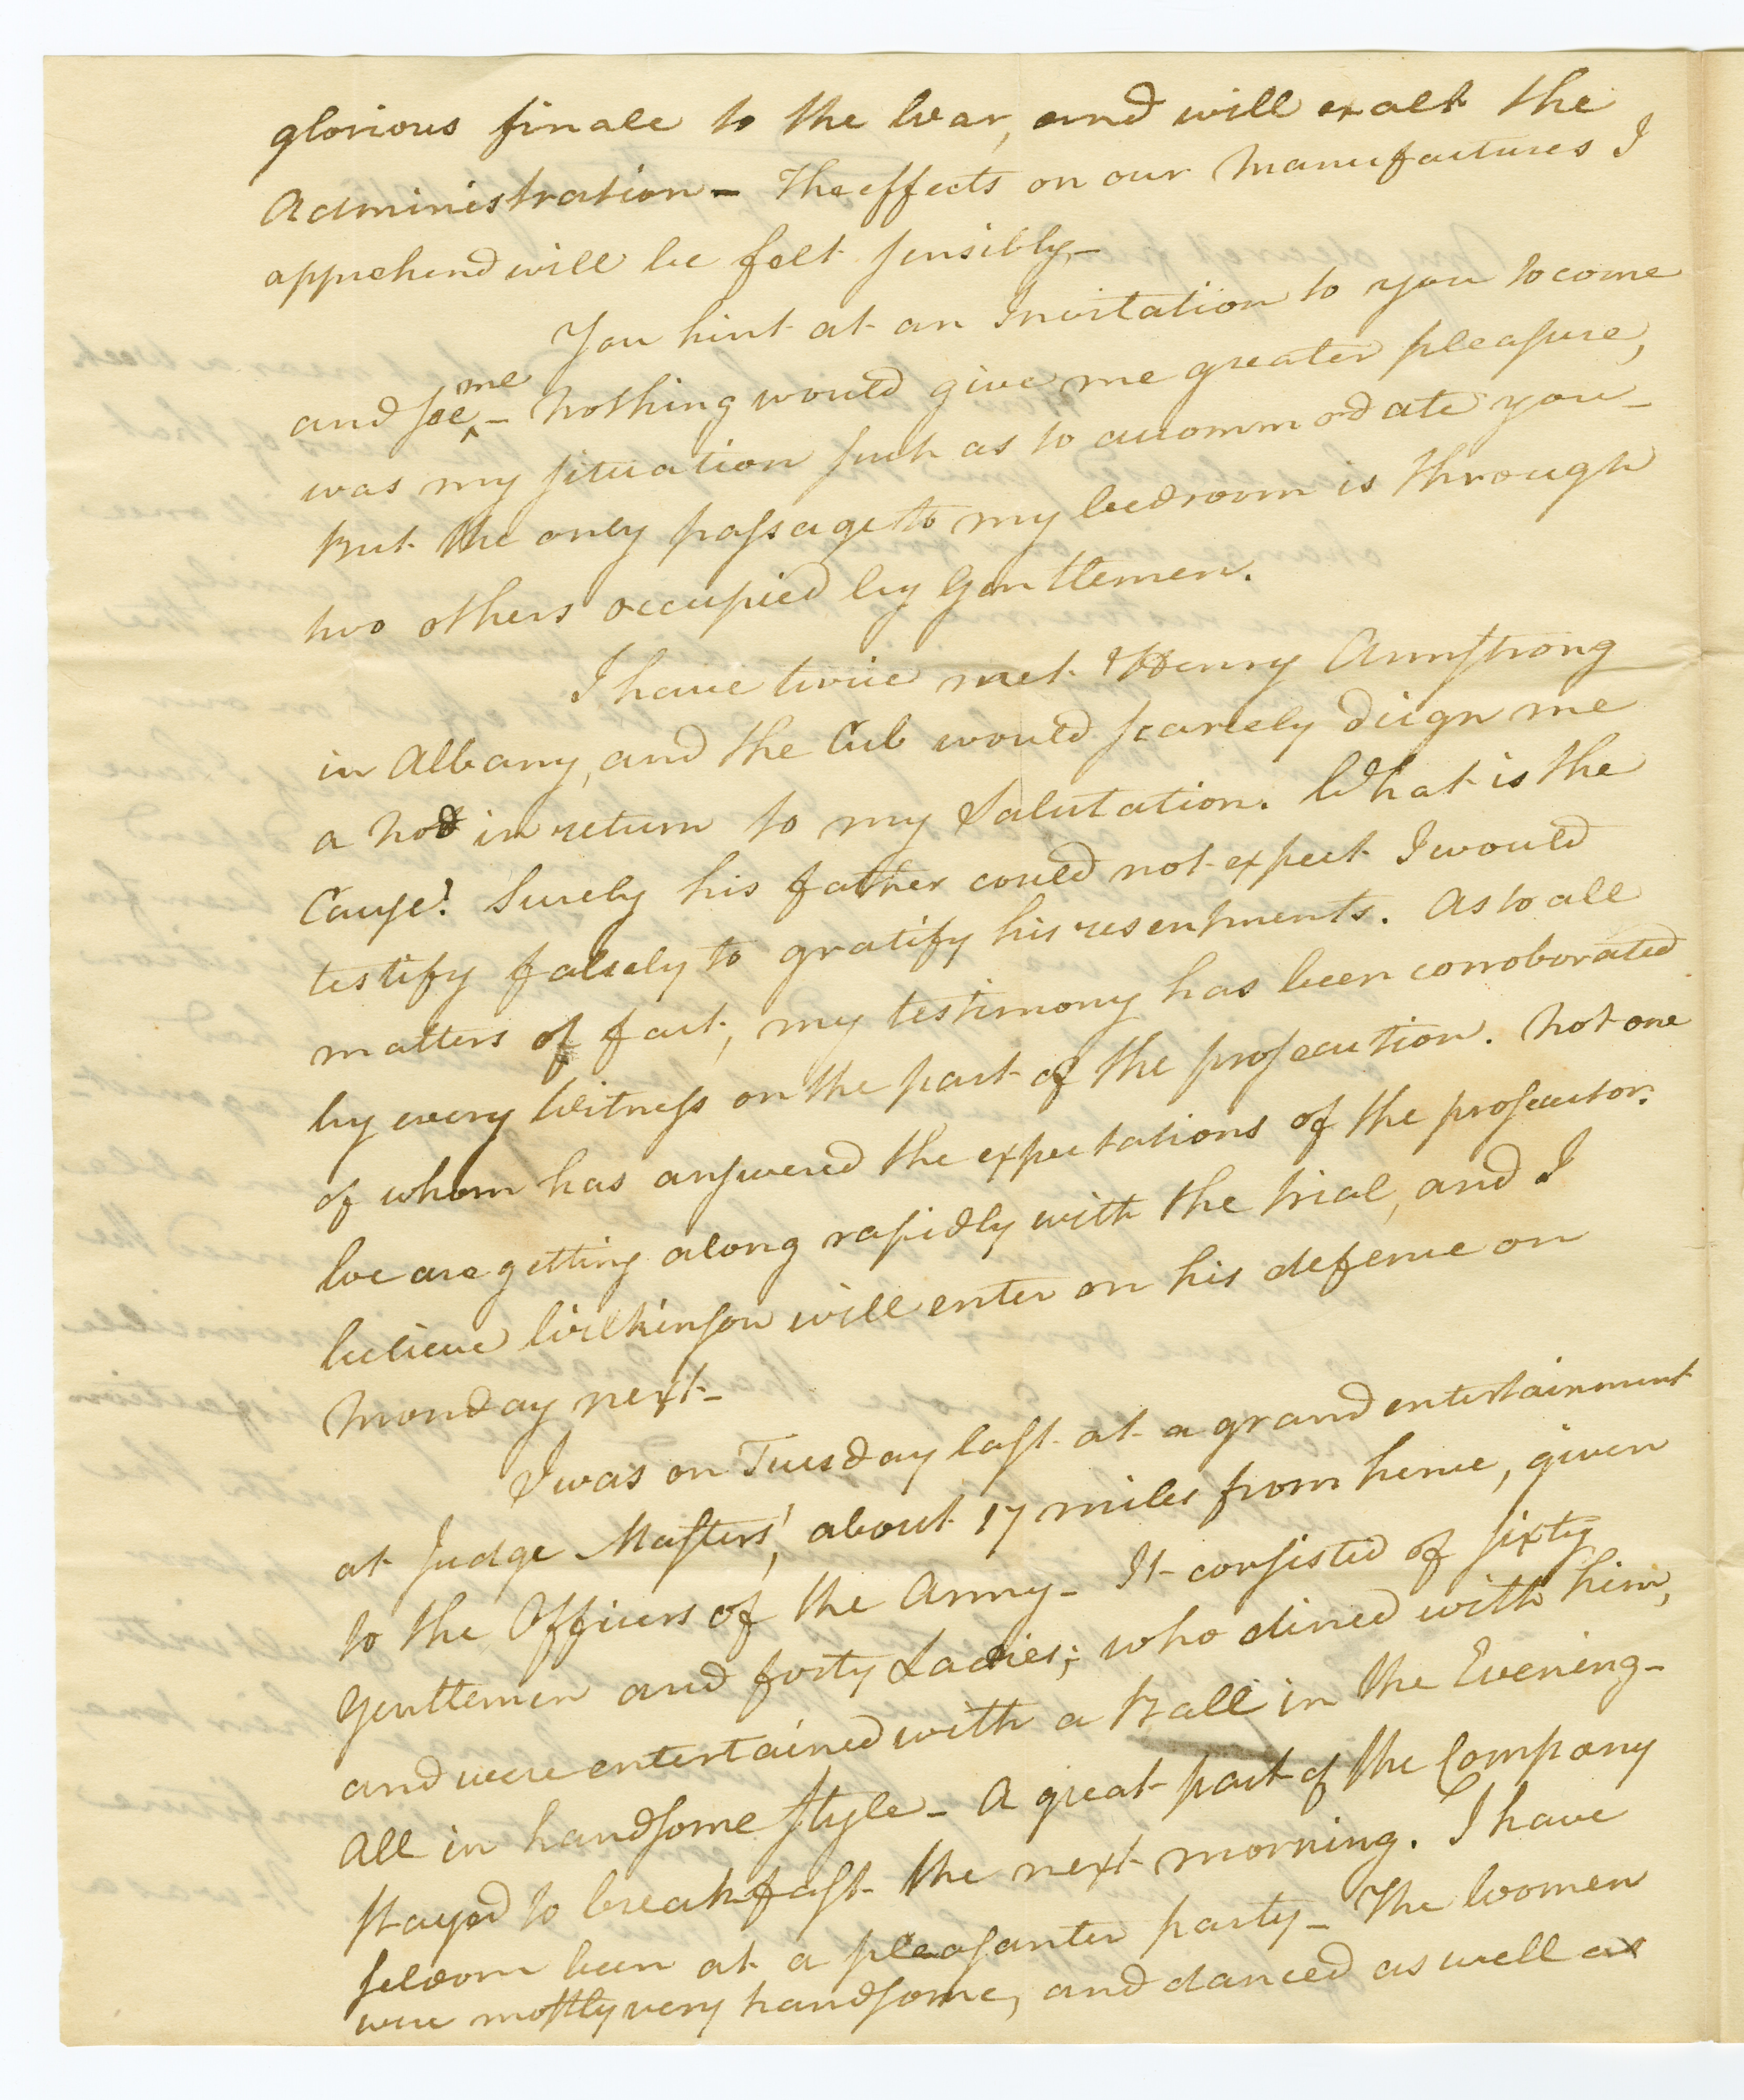 glorious finale to the War, and will exalt the
Administration – The effects on our Manufactures I
apprehend will be felt sensibly –
You hint at an Invitation to you to come
and see me – Nothing would give me greater pleasure,
was my situation such as to accommodate you –
But the only passage to my bedroom is through
two others occupied by Gentlemen.
I have twice met Henry Armstrong
in Albany, and the Cub would scarcely deign me
a nod in return to my Salutation. What is the
Cause? Surely his father could not expect I would
testify falsely to gratify his resentments. As to all
matters of fact, my testimony has been corroborated
by every Witness on the part of the prosecution. Not one
of whom has answered the expectations of the prosecutor.
We are getting along rapidly with the trial, and I
believe Wilkinson will enter on his defence on
Monday next –
I was on Tuesday last at a grand entertainment
at Judge Masters', about 17 miles from hence, given
to the Officers of the Army – It consisted of sixty
Gentlemen and forty Ladies; who dined with him,
and were entertained with a Ball in the Evening –
All in handsome style – A great part of the Company
stayed to breakfast the next morning. I have
seldom been at a pleasanter party – The Women
were mostly very handsome, and danced as well as